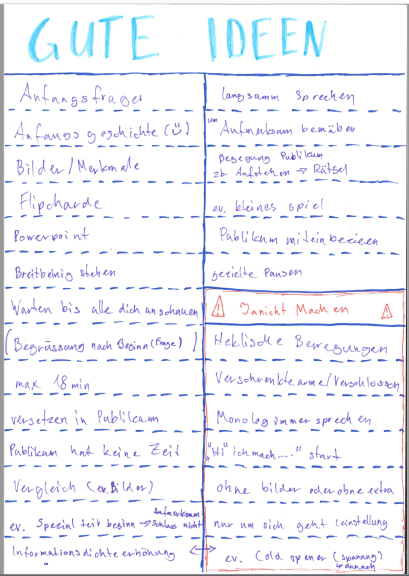 GUTE IDEEN
Anfangsfragen
Anfangsgeschichte (ü)
Bilder/Merkmale
Flipcharde
Powerpoint
Breitbeinig stehen
Warten bis alle dich anschauen
(Begrüssung nach Beginn (Frage) )
max 18 min
versetzen in Publikum
Publikum hat keine Zeit
Vergleich (ev. Bilder)
ev. Spezial teil beginn → Aufmerksam Schluss nicht
Informationsdichte erhöhung
langsamm sprechen
um Aufmerksam bemühen
Begegung Publikum
zb Aufstehen → Rätsel
ev. kleines spiel
Publikum miteinbeziehen
gezielte Pausen
Janicht Machen
Hektische Bewegungen
Verschrenkte arme/Verschlossen
Monolog immer sprechen
"Hi" ich mach...." start
ohne bilder oder ohne extra
nur um sich geht (einstellung
ev. Cold opener (spannung
danach